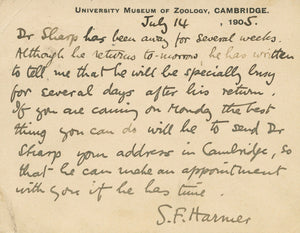 UNIVERSITY MUSEUM OF ZOOLOGY, CAMBRIDGE.
July 14, 1905.
Dr Sharp has been away for several weeks.
Although he returns to-morrow, he has written
to tell me that he will be specially busy
for several days after his return.
If you are coming on Monday the best
thing you can do will be to send Dr
Sharp your address in Cambridge, so
that he can make an appointment
with you if he has time.
S.F. Harmer